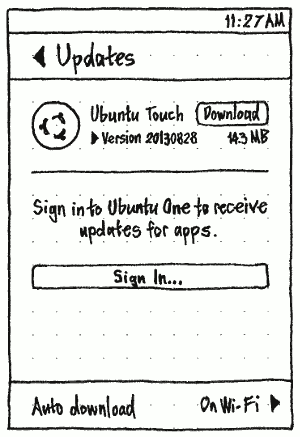 11:27 AM
Updates
Ubuntu Touch Download
Version 20130828 143 MB
Sign into Ubuntu One to receive
updates for apps.
Sign In...
Auto download On Wi-Fi